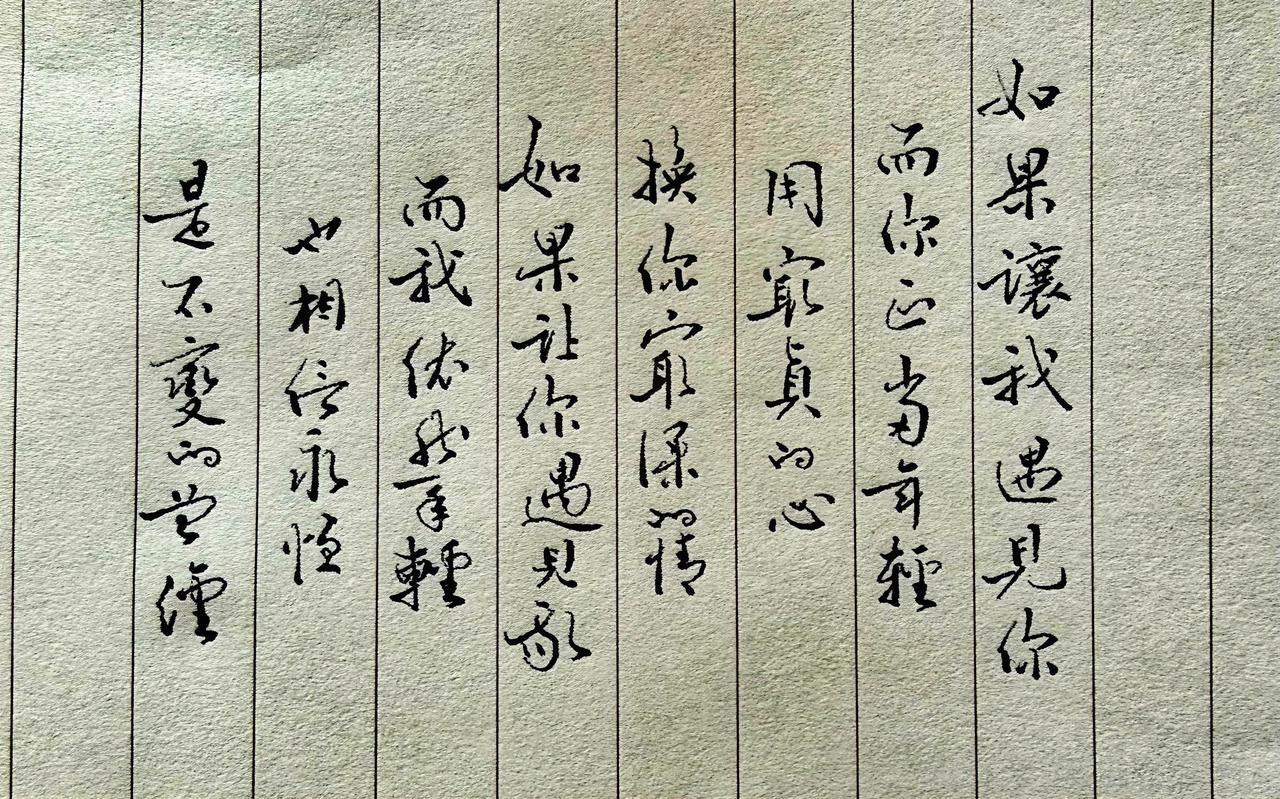 如果讓我遇見你
而你正当年輕
用寂真的心
換你寂深的情
如果让你遇見我
而我依然年輕
也相信永恒
是不變的曾經